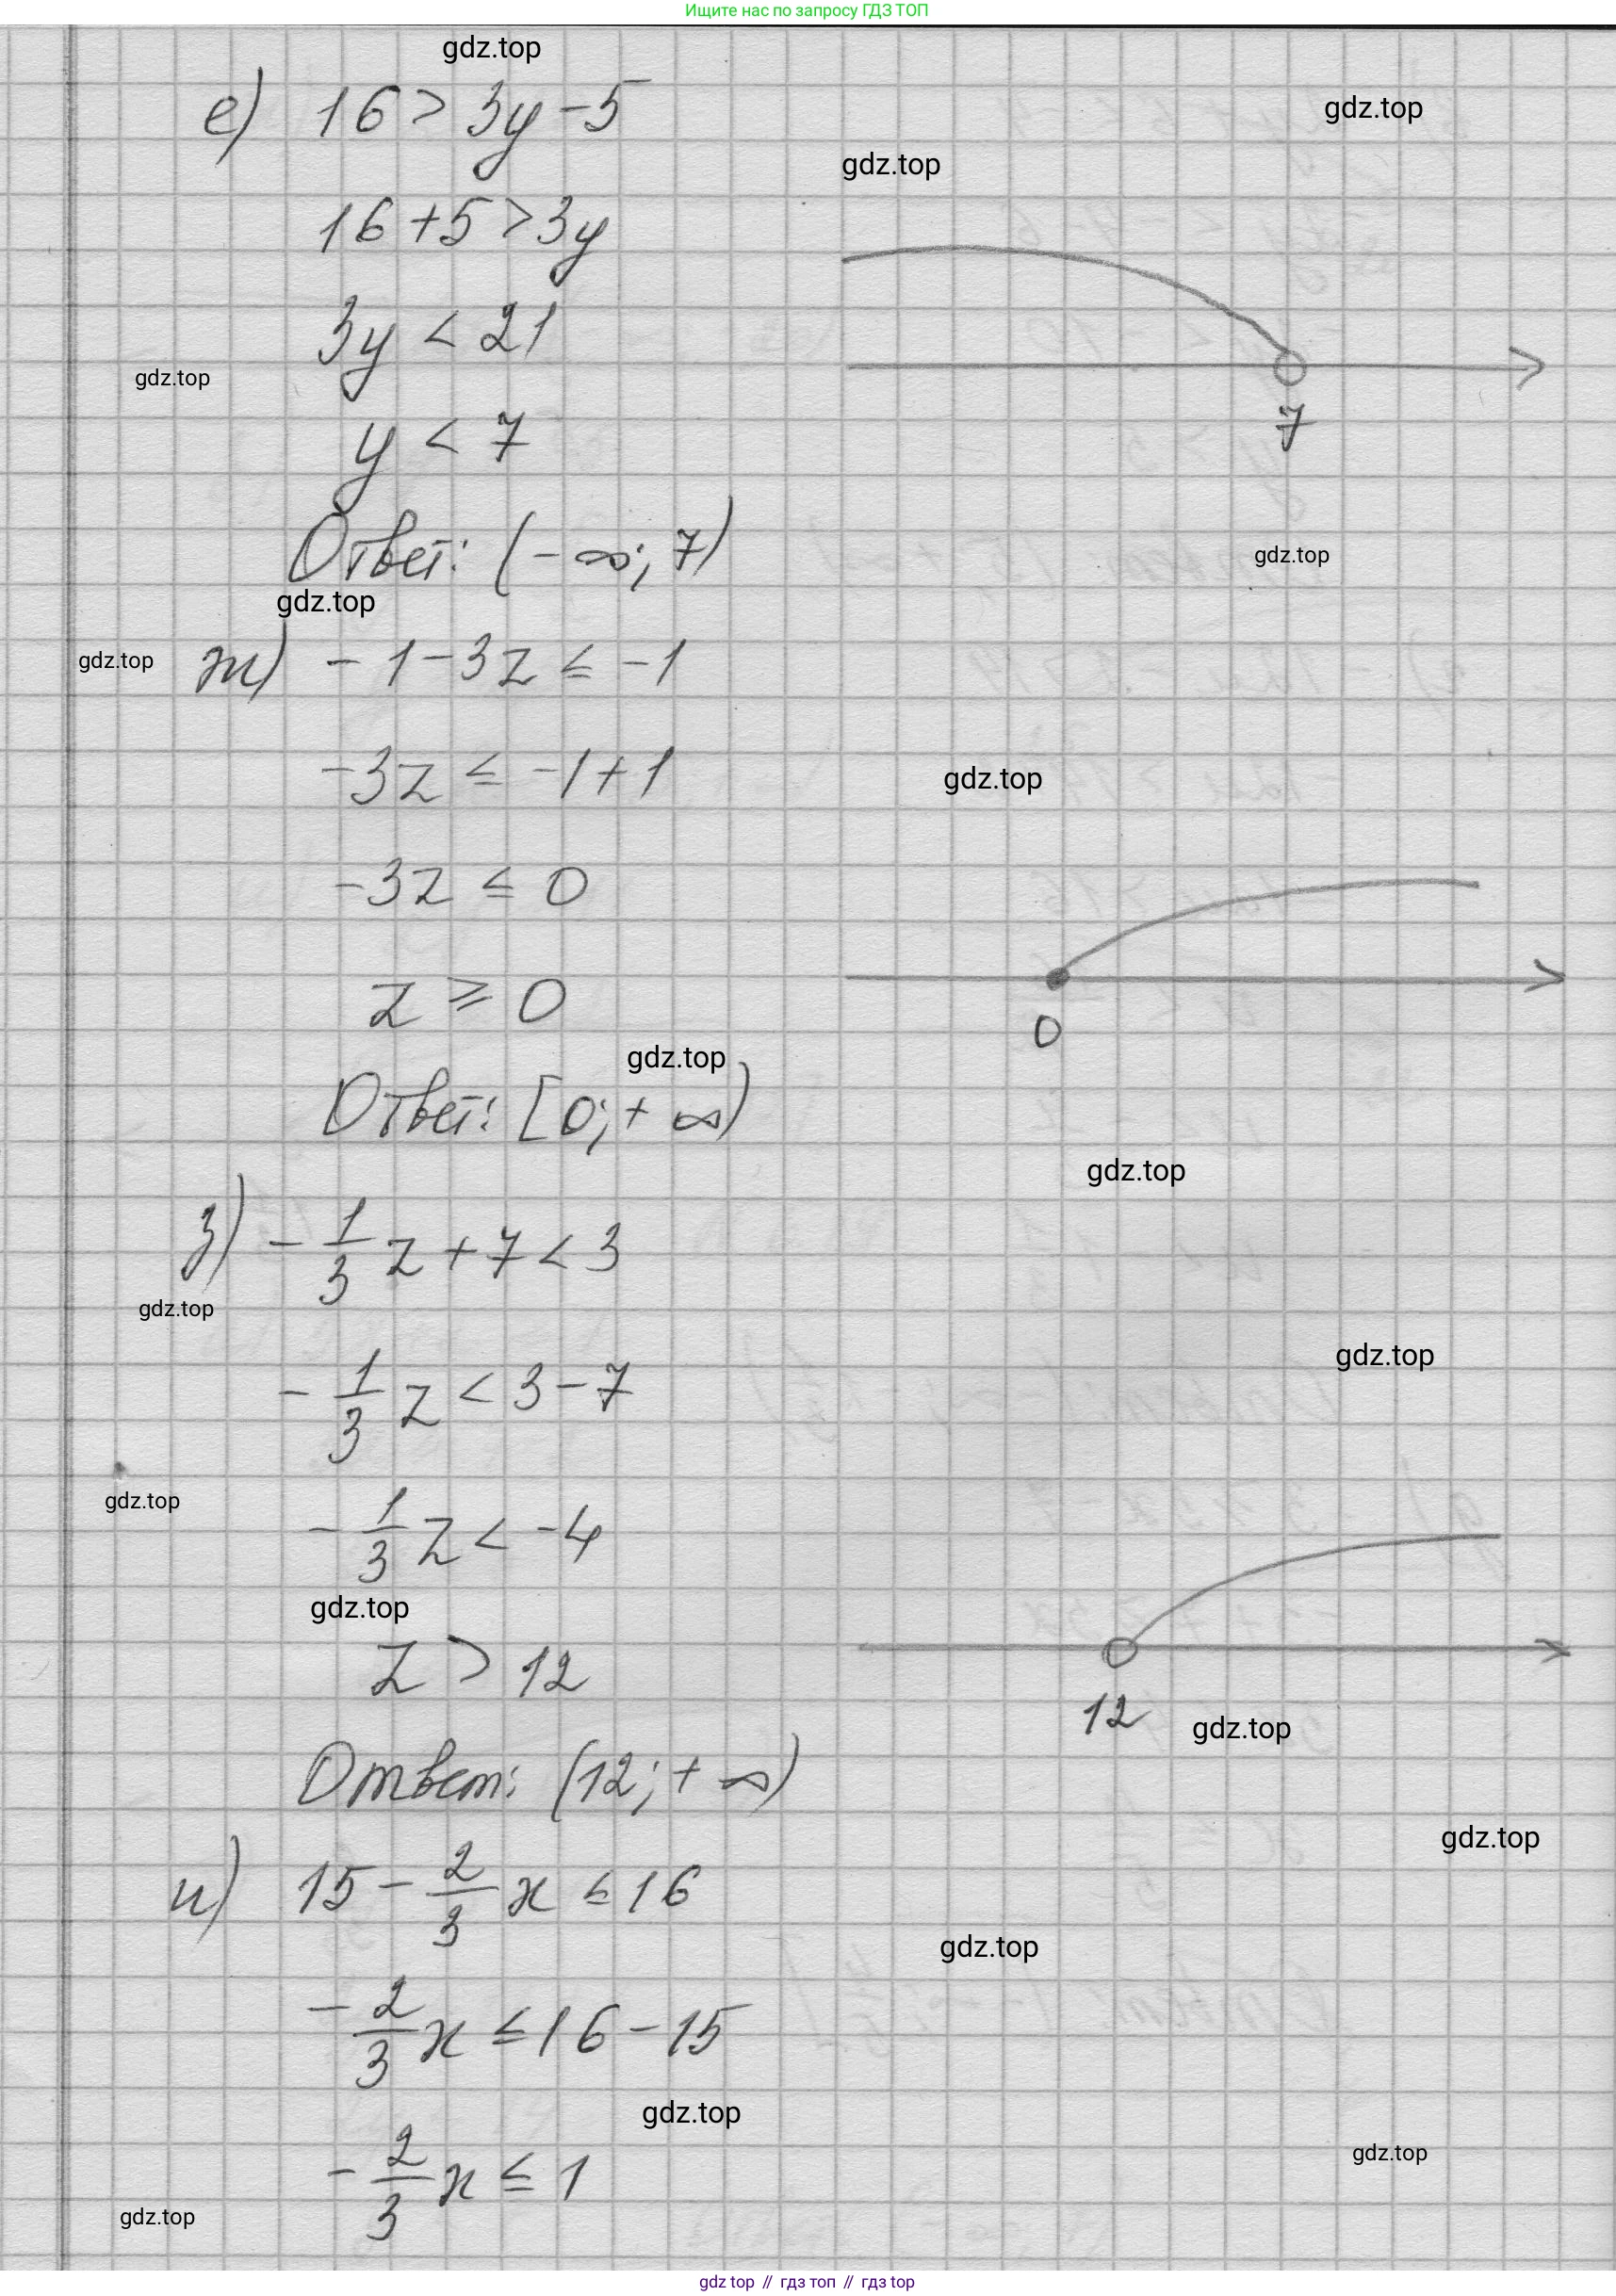 Ищите нас по запросу ГДЗ ТОП
gdz.top
е) 16 > 3y - 5
gdz.top
gdz.top
16 + 5 > 3y
3y < 21
gdz.top
y < 7
7
Ответ: (- ∞; 7)
gdz.top
gdz.top
ж) - 1 - 3z ≤ -1
gdz.top
-3z ≤ -1 + 1
gdz.top
-3z ≤ 0
z ≥ 0
0
gdz.top
Ответ: [0; + ∞)
gdz.top
з) - 1/3 z + 7 < 3
gdz.top
gdz.top
- 1/3 z < 3 - 7
gdz.top
- 1/3 z < -4
gdz.top
z > 12
12
gdz.top
Ответ: (12; + ∞)
gdz.top
и) 15 - 2/3 x ≤ 16
gdz.top
- 2/3 x ≤ 16 - 15
gdz.top
gdz.top
- 2/3 x ≤ 1
gdz.top
gdz top // гдз топ // гдз top